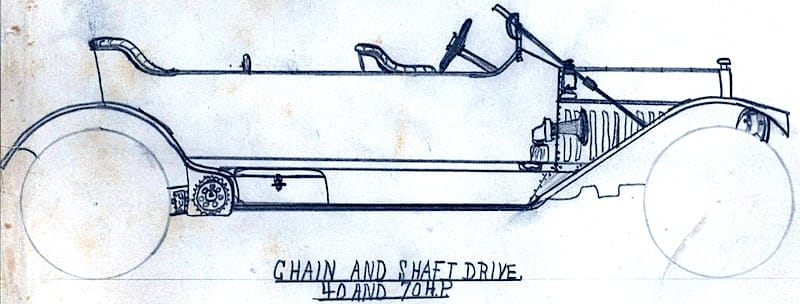 CHAIN AND SHAFT DRIVE.
40 AND 70 H.P.